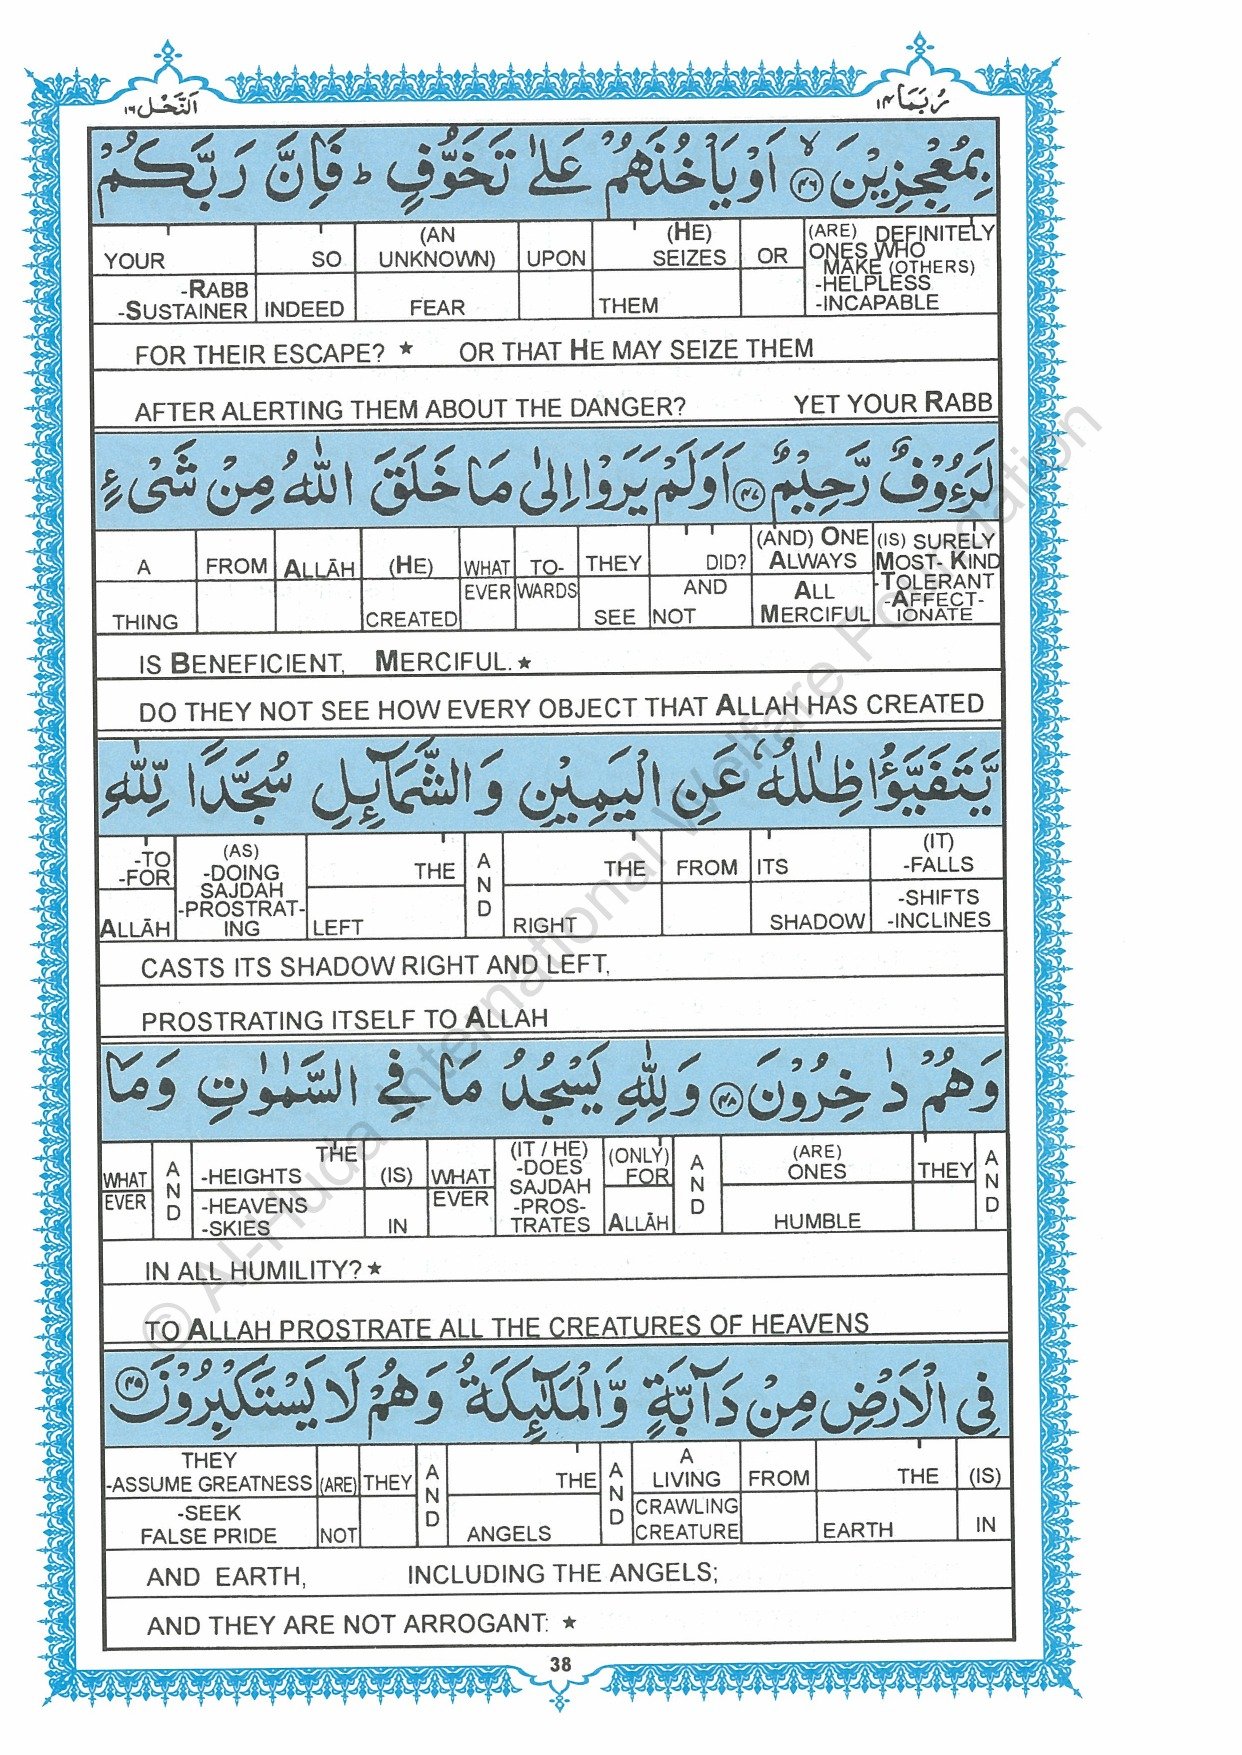 اَلنَّحْل ١٦
رُبَمَا ١٤
بِمُعْجِزِيْنَ ﴿٤٦﴾ اَوْ يَاْخُذَهُمْ عَلٰى تَخَوُّفٍ ط فَاِنَّ رَبَّكُمْ
YOUR SO (AN UNKNOWN) UPON (HE) SEIZES OR (ARE) DEFINITELY ONES WHO MAKE (OTHERS) -HELPLESS -INCAPABLE
-RABB -SUSTAINER INDEED FEAR THEM
FOR THEIR ESCAPE? ★ OR THAT HE MAY SEIZE THEM
AFTER ALERTING THEM ABOUT THE DANGER? YET YOUR RABB
لَرَءُوْفٌ رَّحِيْمٌ ﴿٤٧﴾ اَوَلَمْ يَرَوْا اِلٰى مَا خَلَقَ اللّٰهُ مِنْ شَىْءٍ
A FROM ALLĀH (HE) WHAT TO- THEY DID? (AND) ONE ALWAYS (IS) SURELY MOST- KIND
THING CREATED EVER WARDS SEE AND NOT ALL MERCIFUL -TOLERANT -AFFECT- IONATE
IS BENEFICIENT, MERCIFUL. ★
DO THEY NOT SEE HOW EVERY OBJECT THAT ALLAH HAS CREATED
يَّتَفَيَّؤُا ظِلٰلُهٗ عَنِ الْيَمِيْنِ وَالشَّمَآئِلِ سُجَّدًا لِّلّٰهِ
-TO -FOR (AS) -DOING SAJDAH -PROSTRAT- ING THE AND THE FROM ITS (IT) -FALLS
ALLĀH LEFT RIGHT SHADOW -SHIFTS -INCLINES
CASTS ITS SHADOW RIGHT AND LEFT,
PROSTRATING ITSELF TO ALLAH
وَهُمْ دٰخِرُوْنَ ﴿٤٨﴾ وَلِلّٰهِ يَسْجُدُ مَا فِى السَّمٰوٰتِ وَمَا
WHAT AND THE -HEIGHTS (IS) WHAT (IT / HE) -DOES SAJDAH -PROS- TRATES (ONLY) FOR AND (ARE) ONES THEY AND
EVER -HEAVENS -SKIES IN EVER ALLĀH HUMBLE
IN ALL HUMILITY? ★
TO ALLAH PROSTRATE ALL THE CREATURES OF HEAVENS
فِى الْاَرْضِ مِنْ دَآبَّةٍ وَّالْمَلٰٓئِكَةُ وَهُمْ لَا يَسْتَكْبِرُوْنَ ﴿٤٩﴾
THEY -ASSUME GREATNESS (ARE) THEY AND THE AND A LIVING FROM THE (IS)
-SEEK FALSE PRIDE NOT ANGELS CRAWLING CREATURE EARTH IN
AND EARTH, INCLUDING THE ANGELS;
AND THEY ARE NOT ARROGANT: ★
38
© Al-Huda International Welfare Foundation